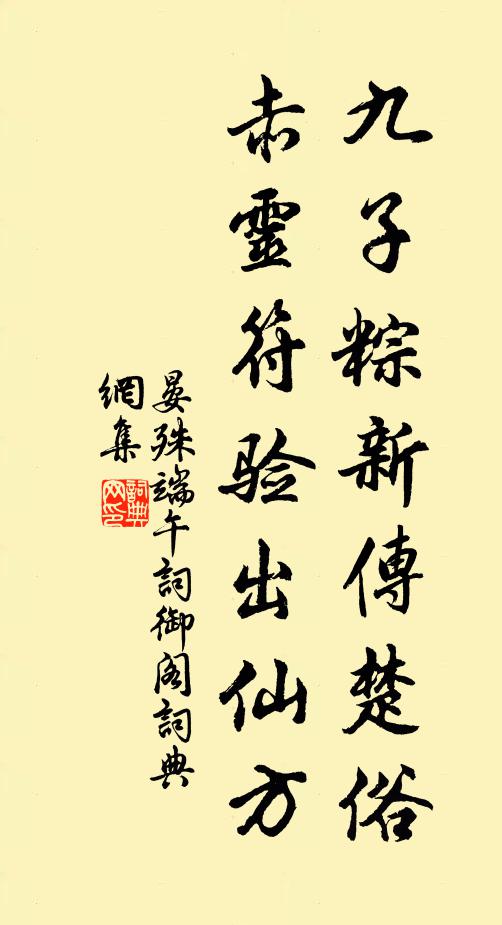 九子粽新傳楚俗
赤靈符验出仙方
晏殊端午詞御阁詞典
網集
詞典
网印